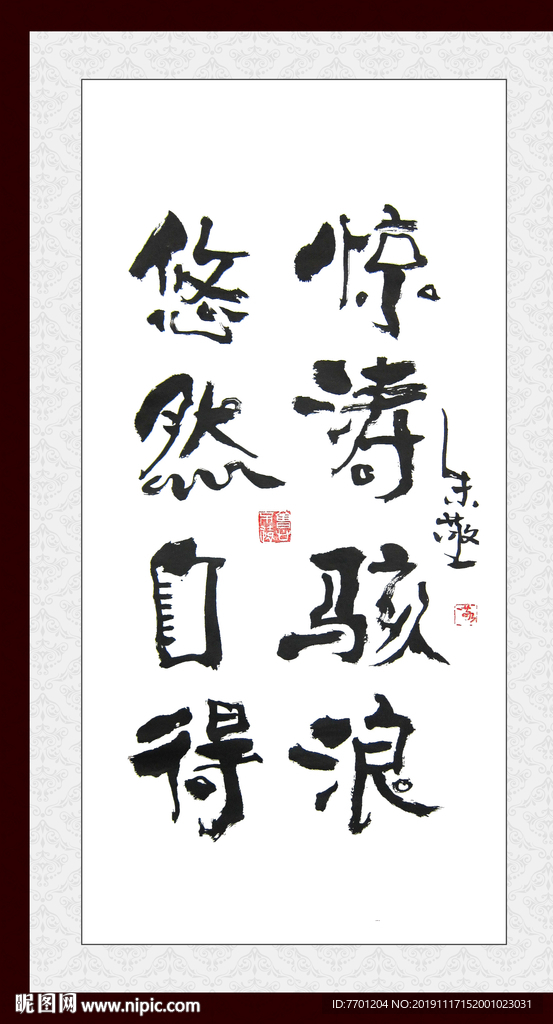 惊涛骇浪
悠然自得
昵图网 www.nipic.com
ID:7701204 NO:20191117152001023031